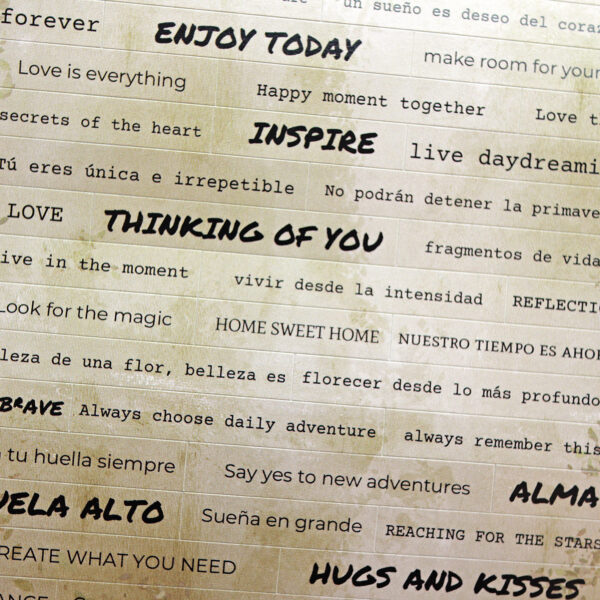 un sueño es deseo del coraz
forever ENJOY TODAY make room for your
Love is everything Happy moment together Love t
secrets of the heart INSPIRE live daydreami
Tú eres única e irrepetible No podrán detener la primave
LOVE THINKING OF YOU fragmentos de vida
ive in the moment vivir desde la intensidad REFLECTIO
Look for the magic HOME SWEET HOME NUESTRO TIEMPO ES AHOR
leza de una flor, belleza es florecer desde lo más profundo
BRAVE Always choose daily adventure always remember this
tu huella siempre Say yes to new adventures ALMA
UELA ALTO Sueña en grande REACHING FOR THE STARS
REATE WHAT YOU NEED HUGS AND KISSES